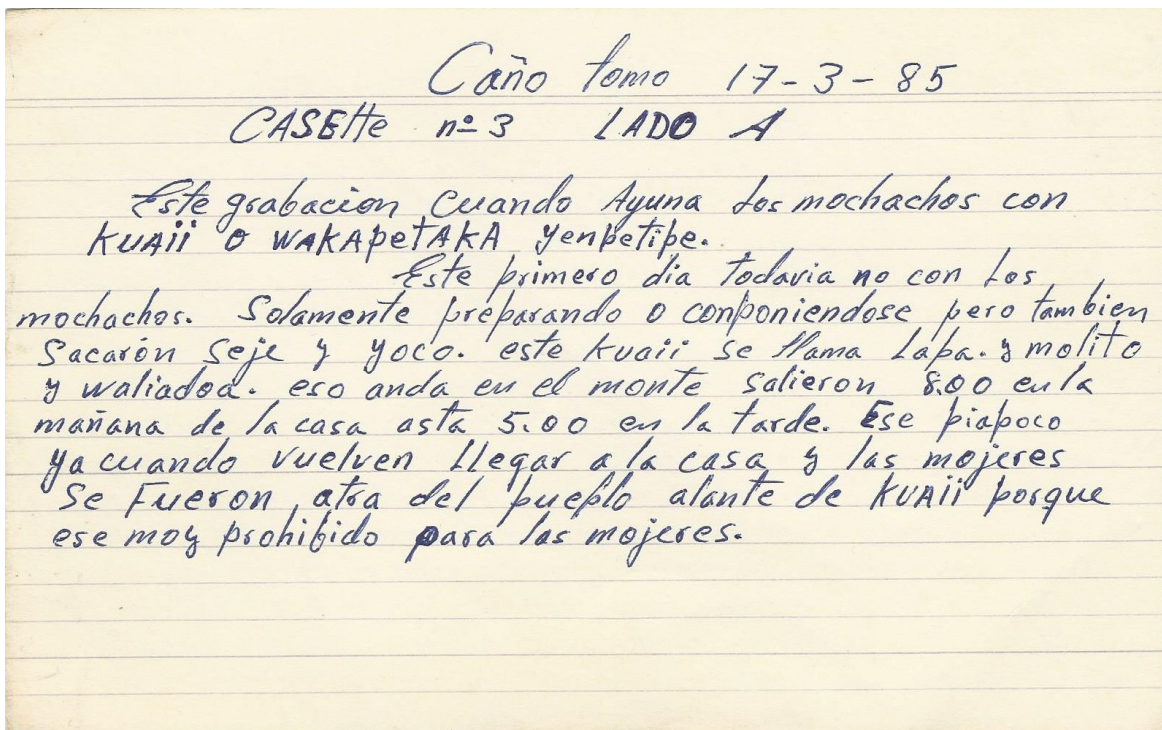 Caño Tomo 17-3-85
CASEtte nº 3 LADO A
Este grabacion Cuando Ayuna Los mochachos con
KUAii O WAKAPETAKA yenpetipe.
Este primero dia todavia no con Los
mochachos. Solamente preparando o conponiendose pero tambien
Sacarón Seje y yoco. este Kuaii se llama Lapa. y molito
y waliadoa. eso anda en el monte salieron 8.00 en la
mañana de la casa asta 5.00 en la tarde. Ese piapoco
ya cuando vuelven LLegar a la casa y las mojeres
Se Fueron atra del pueblo alante de KUAii porque
ese moy prohibido para las mojeres.